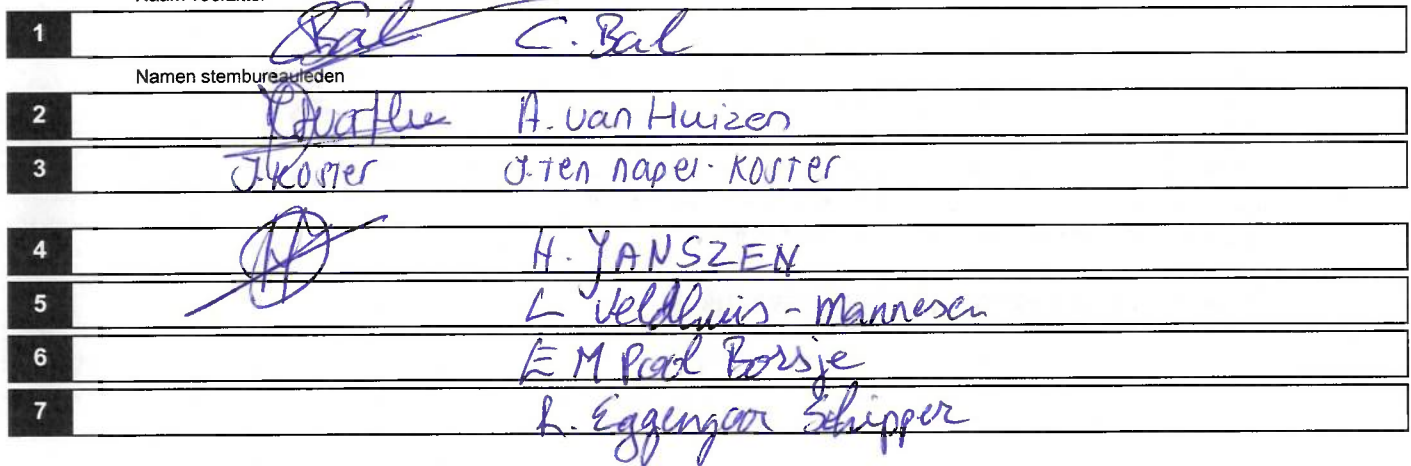 1 Bal C. Bal
Namen stembureauleden
2 A. van Huizen
3 J. Koster J. ten napel - Koster
4 H. JANSZEN
5 L Veldhuis - Mannesen
6 E M Pool Borsje
7 R. Schipper